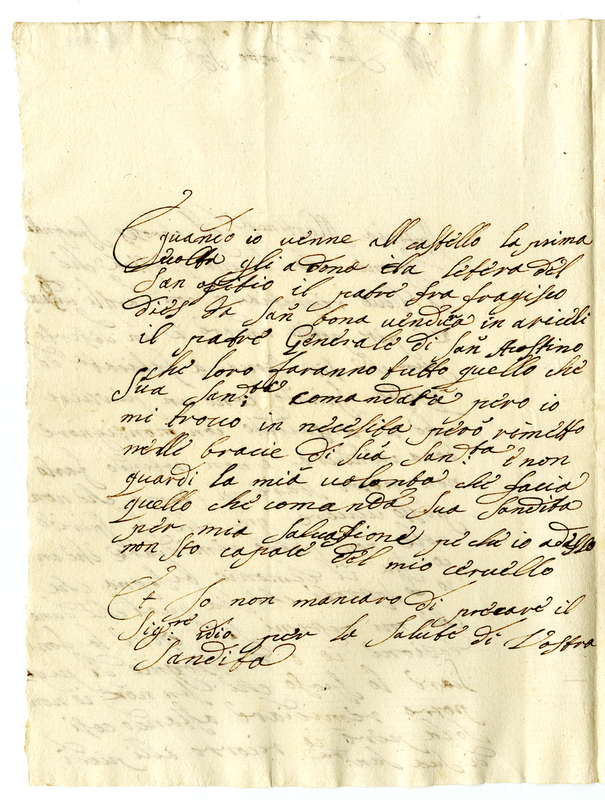 quando io venne all castello la prima
gli a dona la letera del
San offitio il patre fra fragisco
dies da San bona vendura in araceli
il patre Generale di San Acostino
che loro faranno tutto quello che
Sua San:ta comandara pero io
mi trovo in necesita però rimetto
nelle bracie di Sua San:ta e non
guardi la mia volonta che facia
quello che comanda Sua Sandita
per mia salvatione pechè io adesso
non sto capace del mio cervello
Et Io non mancaro di precare il
Sig:re idio per la Salute di Vostra
Sandita